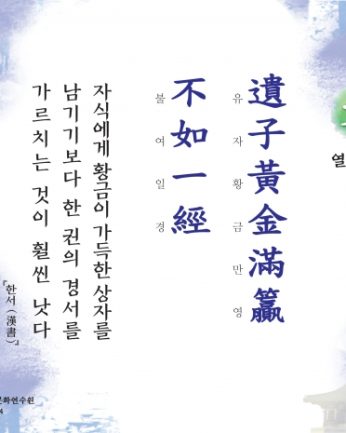 열
遺子黃金滿籯
유자황금만영
不如一經
불여일경
자식에게 황금이 가득한 상자를
남기기보다 한 권의 경서를
가르치는 것이 훨씬 낫다
『한서(漢書)』
문화연수원
4